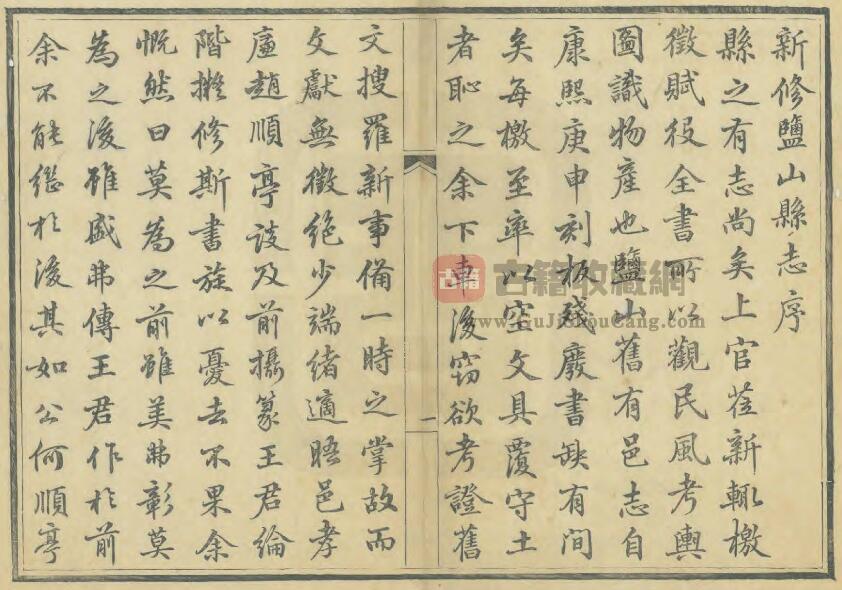 新修鹽山縣志序
縣之有志尚矣上官莅新輒檄
徵賦役全書所以觀民風考輿
圖識物產也鹽山舊有邑志自
康熙庚申刻板殘廢書缺有間
矣每檄至率以空文具覆守土
者恥之余下車後窃欲考證舊
一
文搜羅新事備一時之掌故而
文獻無徵絕少端緒適晤邑孝
廉趙順亭談及前攝篆王君綸
階擬修斯書旋以憂去不果余
慨然曰莫為之前雖美弗彰莫
為之後雖盛弗傳王君作於前
余不能繼於後其如公何順亭
古籍 古籍收藏網
www.GuJiShouCang.com